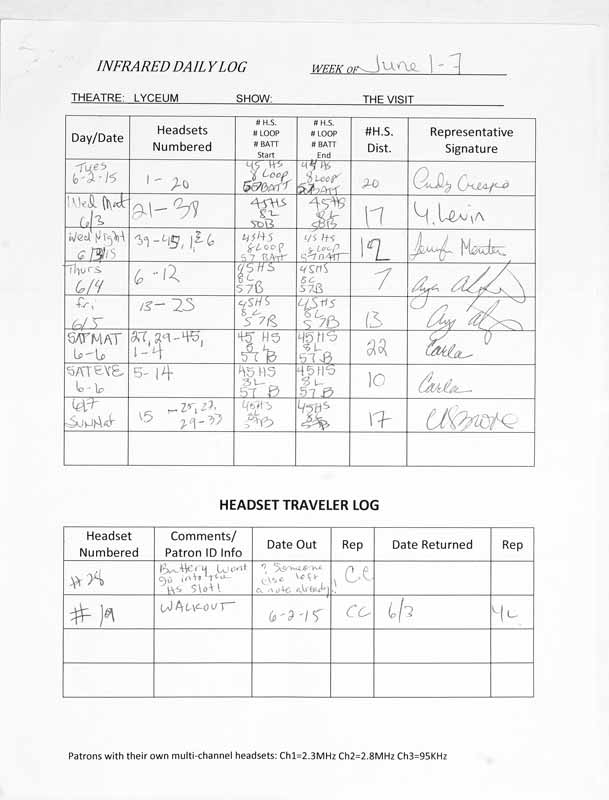 INFRARED DAILY LOG WEEK OF June 1-7
THEATRE: LYCEUM SHOW: THE VISIT
Day/Date Headsets Numbered # H.S. # LOOP # BATT Start # H.S. # LOOP # BATT End #H.S. Dist. Representative Signature
Tues 6-2-15 1-20 45 HS 8 LOOP 57 BATT HS 8 LOOP BATT 20 Cindy Crespo
Wed Mat 6/3 21-38 45HS 8L 50B 45HS 8L 50B 17 Y. Levin
Wed Night 39-45, 1 6 45HS 8LOOP 57 BATT 45 HS 8 LOOP 57 BATT 12
Thurs 6/4 6-12 45HS 8L 57B 45HS 8L 57B 7
fri, 6/5 13-25 45HS 8L 57B 45HS 8L 57B 13
SAT MAT 6-6 27, 29-45, 1-4 45 HS 8 L 57 B 45HS 8L 57B 22 Carla
SAT EVE 6-6 5-14 45HS 8L 57 B 45HS 8L 57B 10 Carla
6/7 SUN Mat 15 -25, 27, 29-33 45HS 8L 57B 45HS 8L 17
HEADSET TRAVELER LOG
Headset Numbered Comments/ Patron ID Info Date Out Rep Date Returned Rep
#28 Battery wont go into HS Slot! ? Someone else left a note already! C.C.
# 19 WALKOUT 6-2-15 CC 6/3 YL
Patrons with their own multi-channel headsets: Ch1=2.3MHz Ch2=2.8MHz Ch3=95KHz